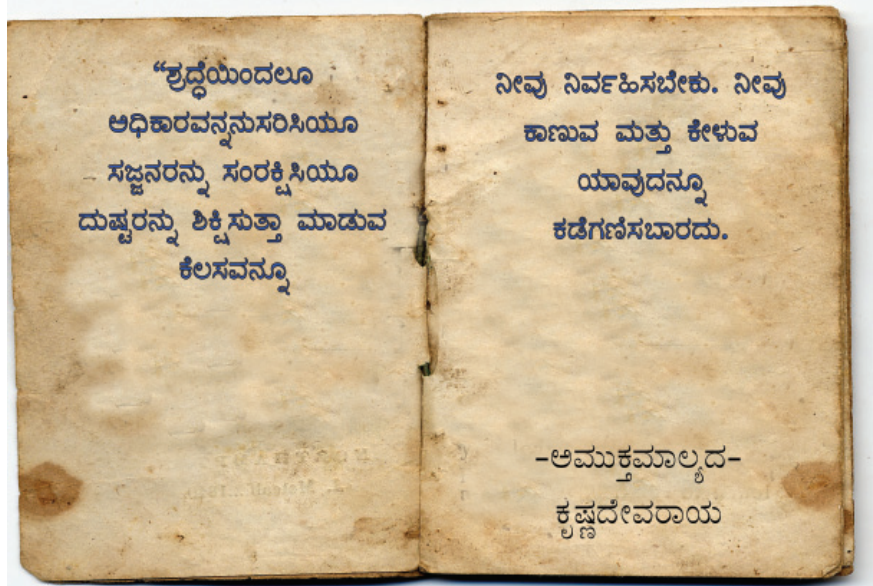 “ಶ್ರದ್ಧೆಯಿಂದಲೂ
ಅಧಿಕಾರವನ್ನನುಸರಿಸಿಯೂ
ಸಜ್ಜನರನ್ನು ಸಂರಕ್ಷಿಸಿಯೂ
ದುಷ್ಟರನ್ನು ಶಿಕ್ಷಿಸುತ್ತಾ ಮಾಡುವ
ಕೆಲಸವನ್ನೂ
ನೀವು ನಿರ್ವಹಿಸಬೇಕು. ನೀವು
ಕಾಣುವ ಮತ್ತು ಕೇಳುವ
ಯಾವುದನ್ನೂ
ಕಡೆಗಣಿಸಬಾರದು.
-ಅಮುಕ್ತಮಾಲ್ಯದ-
ಕೃಷ್ಣದೇವರಾಯ